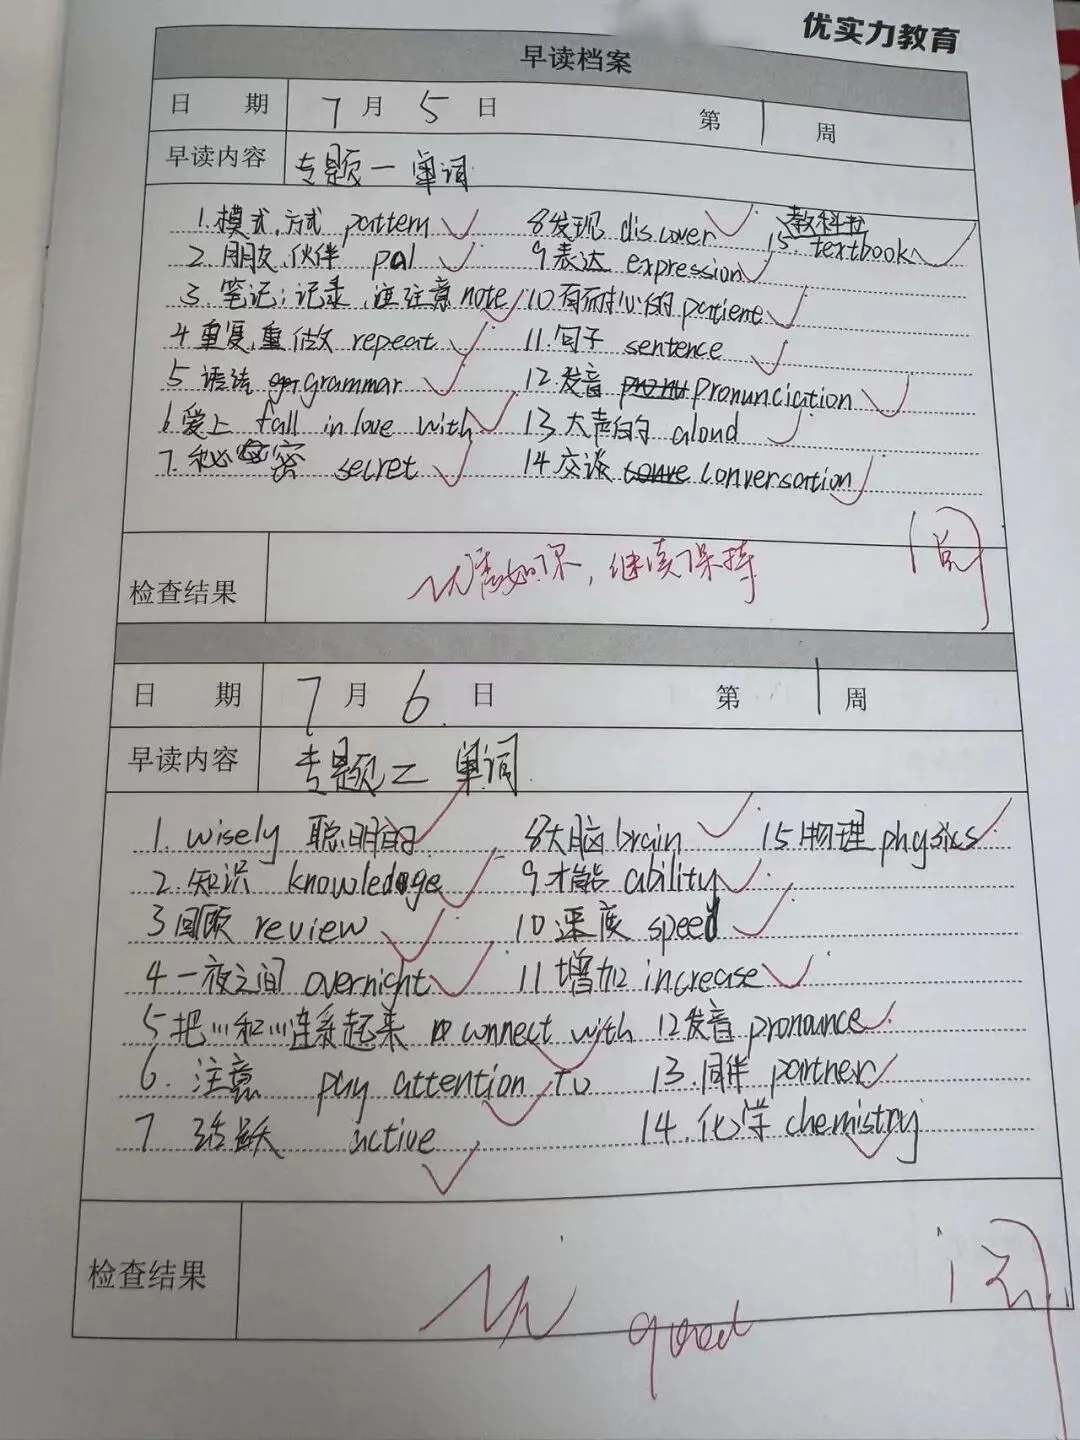 优实力教育
早读档案
日 期 7月5日 第1周
早读内容 专题一 单词
1.模式,方式 pattern 8发现 discover 教科书
2.朋友,伙伴 pal 9表达 expression 15 textbook
3.笔记;记录,注注意 note 10有耐心的 patient
4重复,重做 repeat 11.句子 sentence
5 语法 grammar 12.发音 pronunciation
6爱上 fall in love with 13大声的 aloud
7.秘密 secret 14交谈 conversation
检查结果 优 
继续保持 阅
日 期 7月6日 第1周
早读内容 专题二 单词
1.wisely 聪明的 8大脑 brain 15物理 physics
2.知识 knowledge 9才能 ability
3回顾 review 10 速度 speed
4一夜之间 overnight 11增加 increase
5把…和…连系起来 connect with 12发音 pronance
6.注意 pay attention to 13.同伴 partner
7活跃 active 14.化学 chemistry
检查结果 优 good 阅